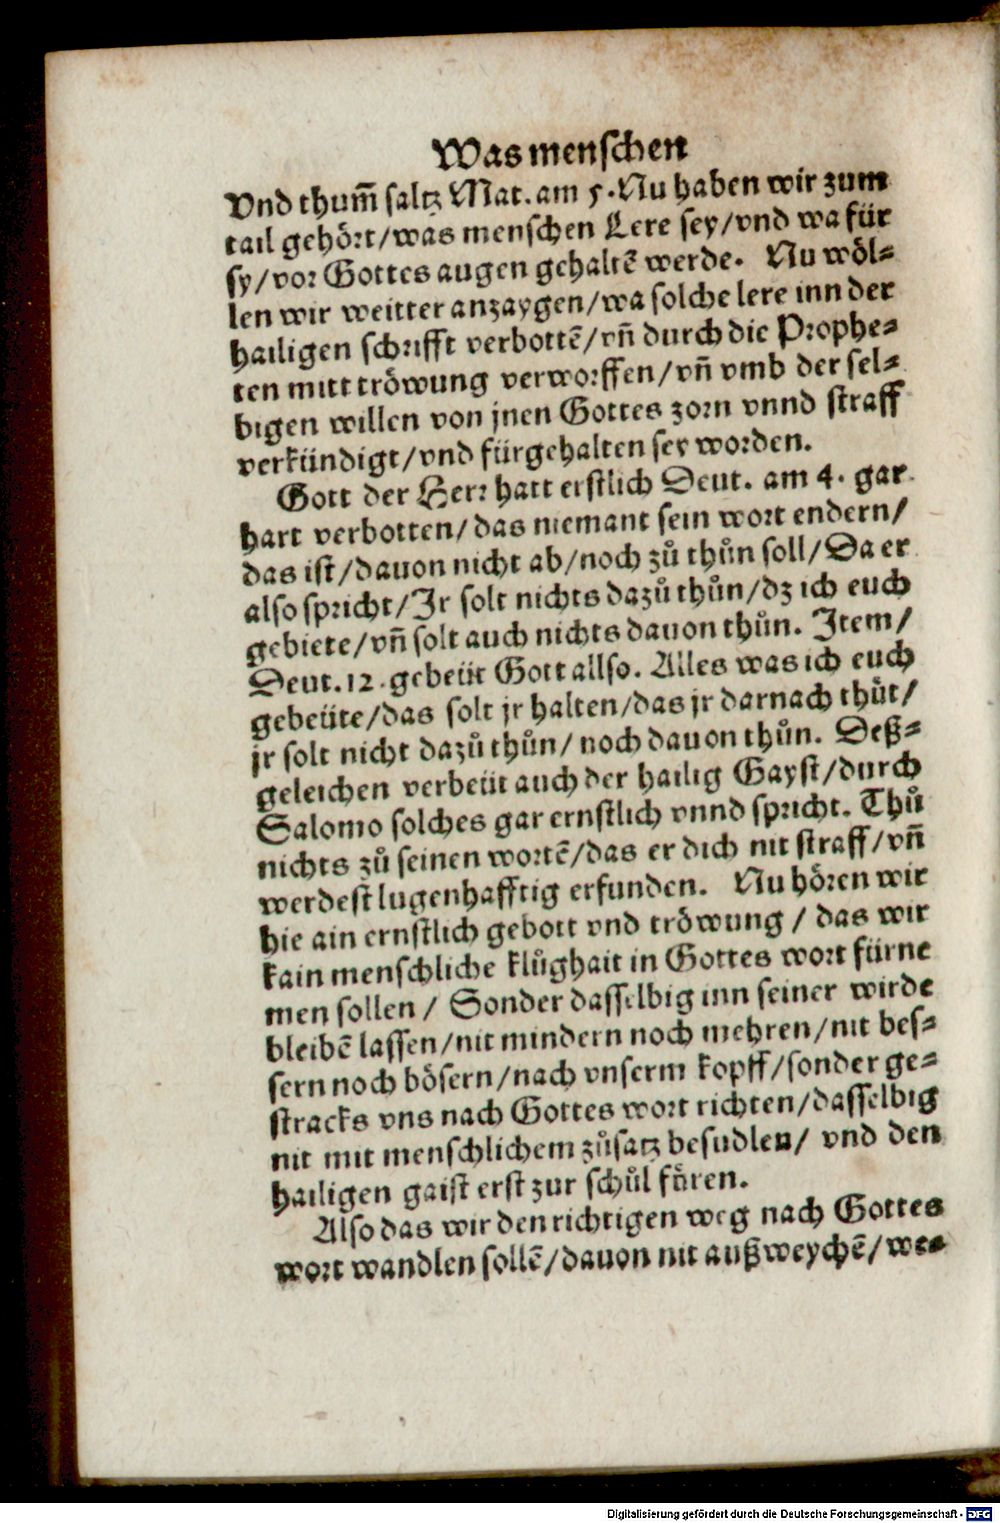 Was menschen
Vnd thum̃ saltz Mat. am 5. Nu haben wir zum
tail gehört/was menschen Lere sey/vnd wa für
sy/vor Gottes augen gehaltẽ werde. Nu wöl⸗
len wir weitter anzaygen/wa solche lere inn der
hailigen schrifft verbottẽ/vñ durch die Prophe⸗
ten mitt tröwung verworffen/vñ vmb der sel⸗
bigen willen von jnen Gottes zorn vnnd straff
verkündigt/vnd fürgehalten sey worden.
Gott der Herr hatt erstlich Deut. am 4. gar
hart verbotten/das niemant sein wort endern/
das ist/dauon nicht ab/noch zů thůn soll/Da er
also spricht/Jr solt nichts dazů thůn/dz ich euch
gebiete/vñ solt auch nichts dauon thůn. Item/
Deut. 12. gebeüt Gott allso. Alles was ich euch
gebeüte/das solt jr halten/das jr darnach thůt/
jr solt nicht dazů thůn/noch dauon thůn. Deß⸗
geleichen verbeüt auch der hailig Gayst/durch
Salomo solches gar ernstlich vnnd spricht. Thů
nichts zů seinen wortẽ/das er dich nit straff/vñ
werdest lugenhafftig erfunden. Nu hören wir
hie ain ernstlich gebott vnd tröwung/das wir
kain menschliche klůghait in Gottes wort fürne
men sollen/Sonder dasselbig inn seiner wirde
bleibẽ lassen/nit mindern noch mehren/nit bes⸗
sern noch bösern/nach vnserm kopff/sonder ge⸗
stracks vns nach Gottes wort richten/dasselbig
nit mit menschlichem zůsatz besudlen/vnd den
hailigen gaist erst zur schůl fören.
Also das wir den richtigen weg nach Gottes
wort wandlen sollẽ/dauon nit außweychẽ/we⸗
Digitalisierung gefördert durch die Deutsche Forschungsgemeinschaft - DFG